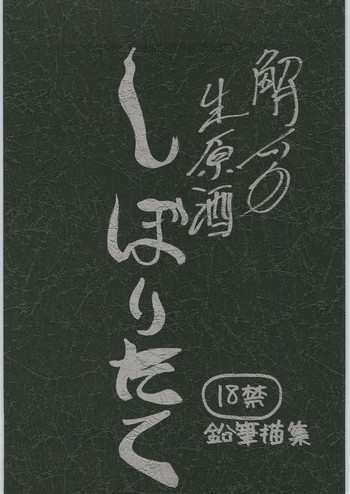 解所
生原酒
しぼりたて
18禁
鉛筆描集